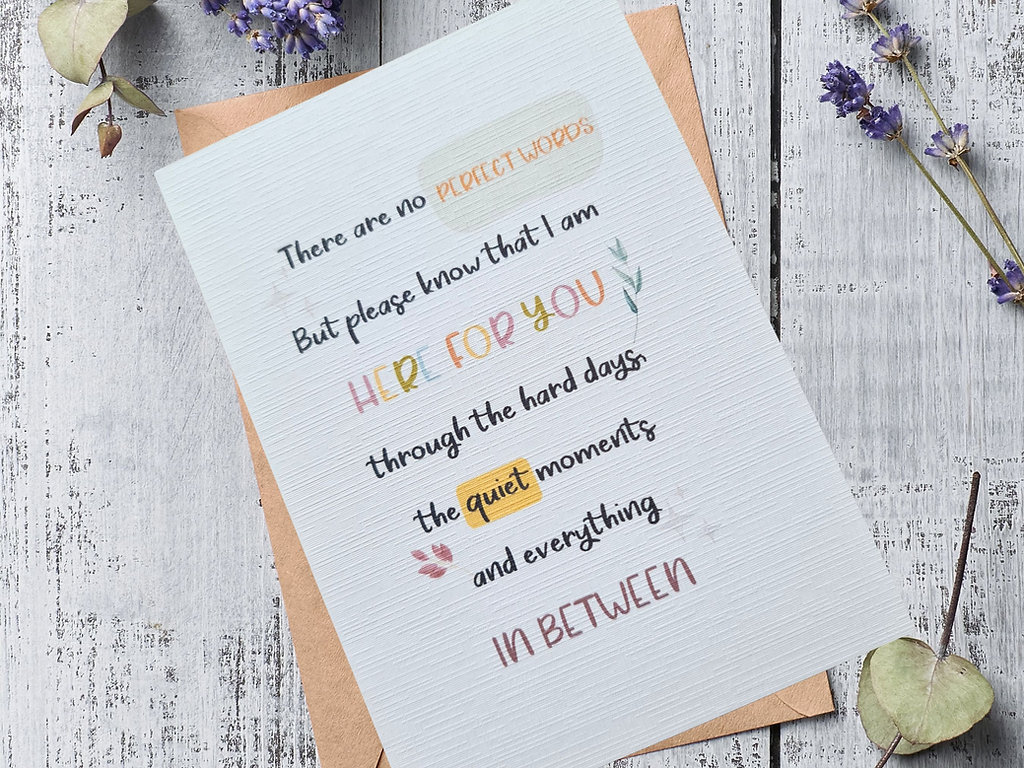 There are no PERFECT WORDS
But please know that I am
HERE FOR YOU
through the hard days,
the quiet moments
and everything
IN BETWEEN